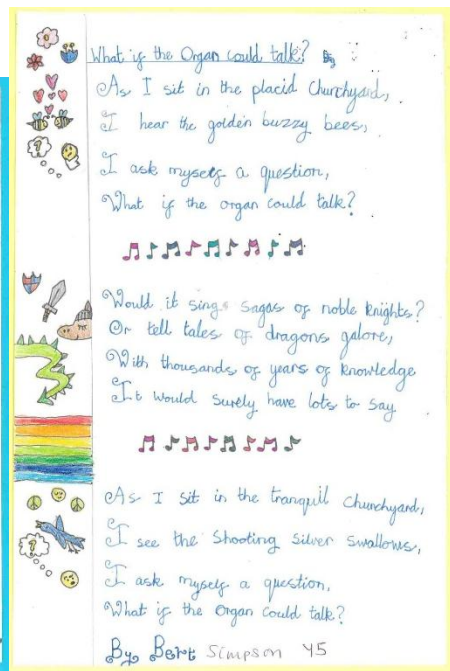 What if the Organ could talk?
As I sit in the placid Churchyard,
I hear the golden buzzy bees,
I ask myself a question,
What if the organ could talk?
Would it sing sagas of noble knights?
Or tell tales of dragons galore,
With thousands of years of knowledge
It would surely have lots to say
As I sit in the tranquil Churchyard,
I see the Shooting Silver Swallows,
I ask myself a question,
What if the Organ could talk?
By Bert Simpson Y5